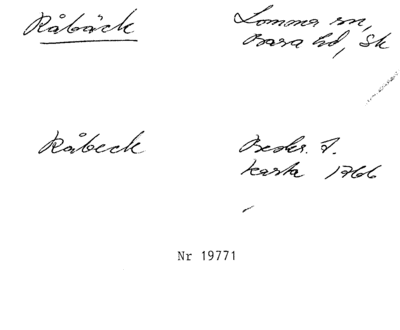 Råbäck
Lomma sn,
Bara hd, Sk
Råbeck
Beskr. t.
karta 1766
Nr 19771